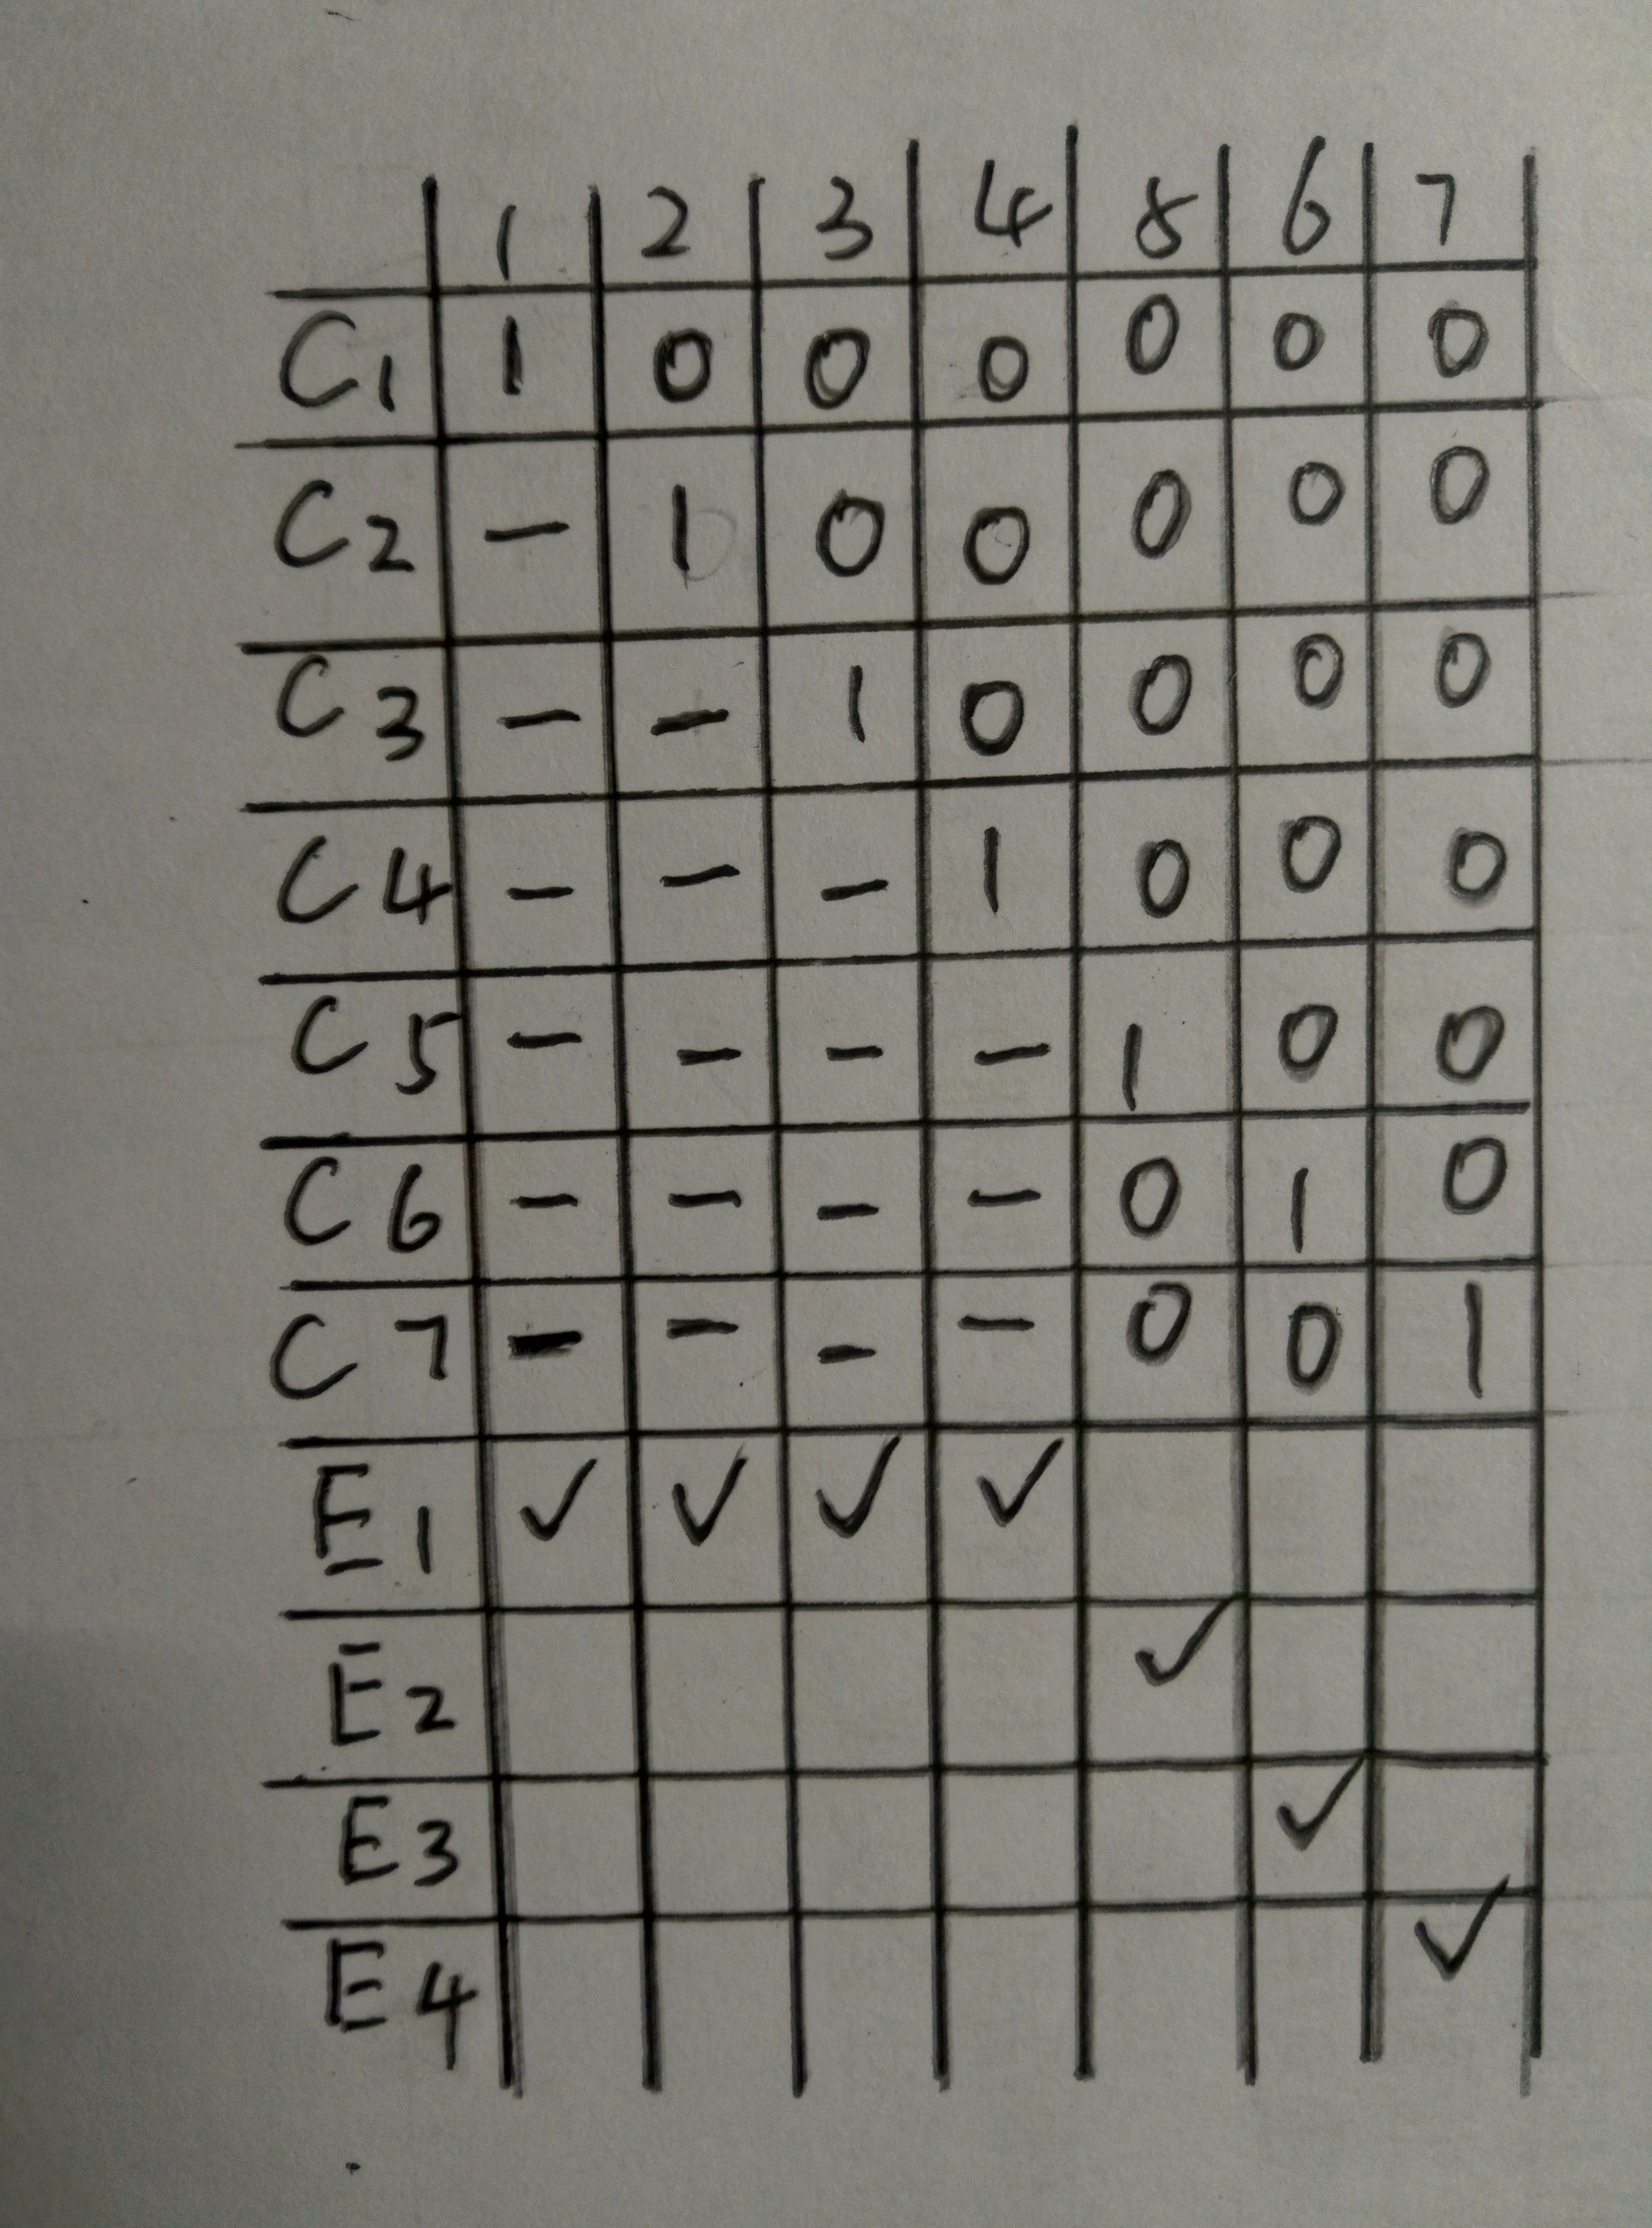 1 2 3 4 5 6 7
C1 1 0 0 0 0 0 0
C2 - 1 0 0 0 0 0
C3 - - 1 0 0 0 0
C4 - - - 1 0 0 0
C5 - - - - 1 0 0
C6 - - - - 0 1 0
C7 - - - - 0 0 1
E1 ✓ ✓ ✓ ✓
E2 ✓
E3 ✓
E4 ✓